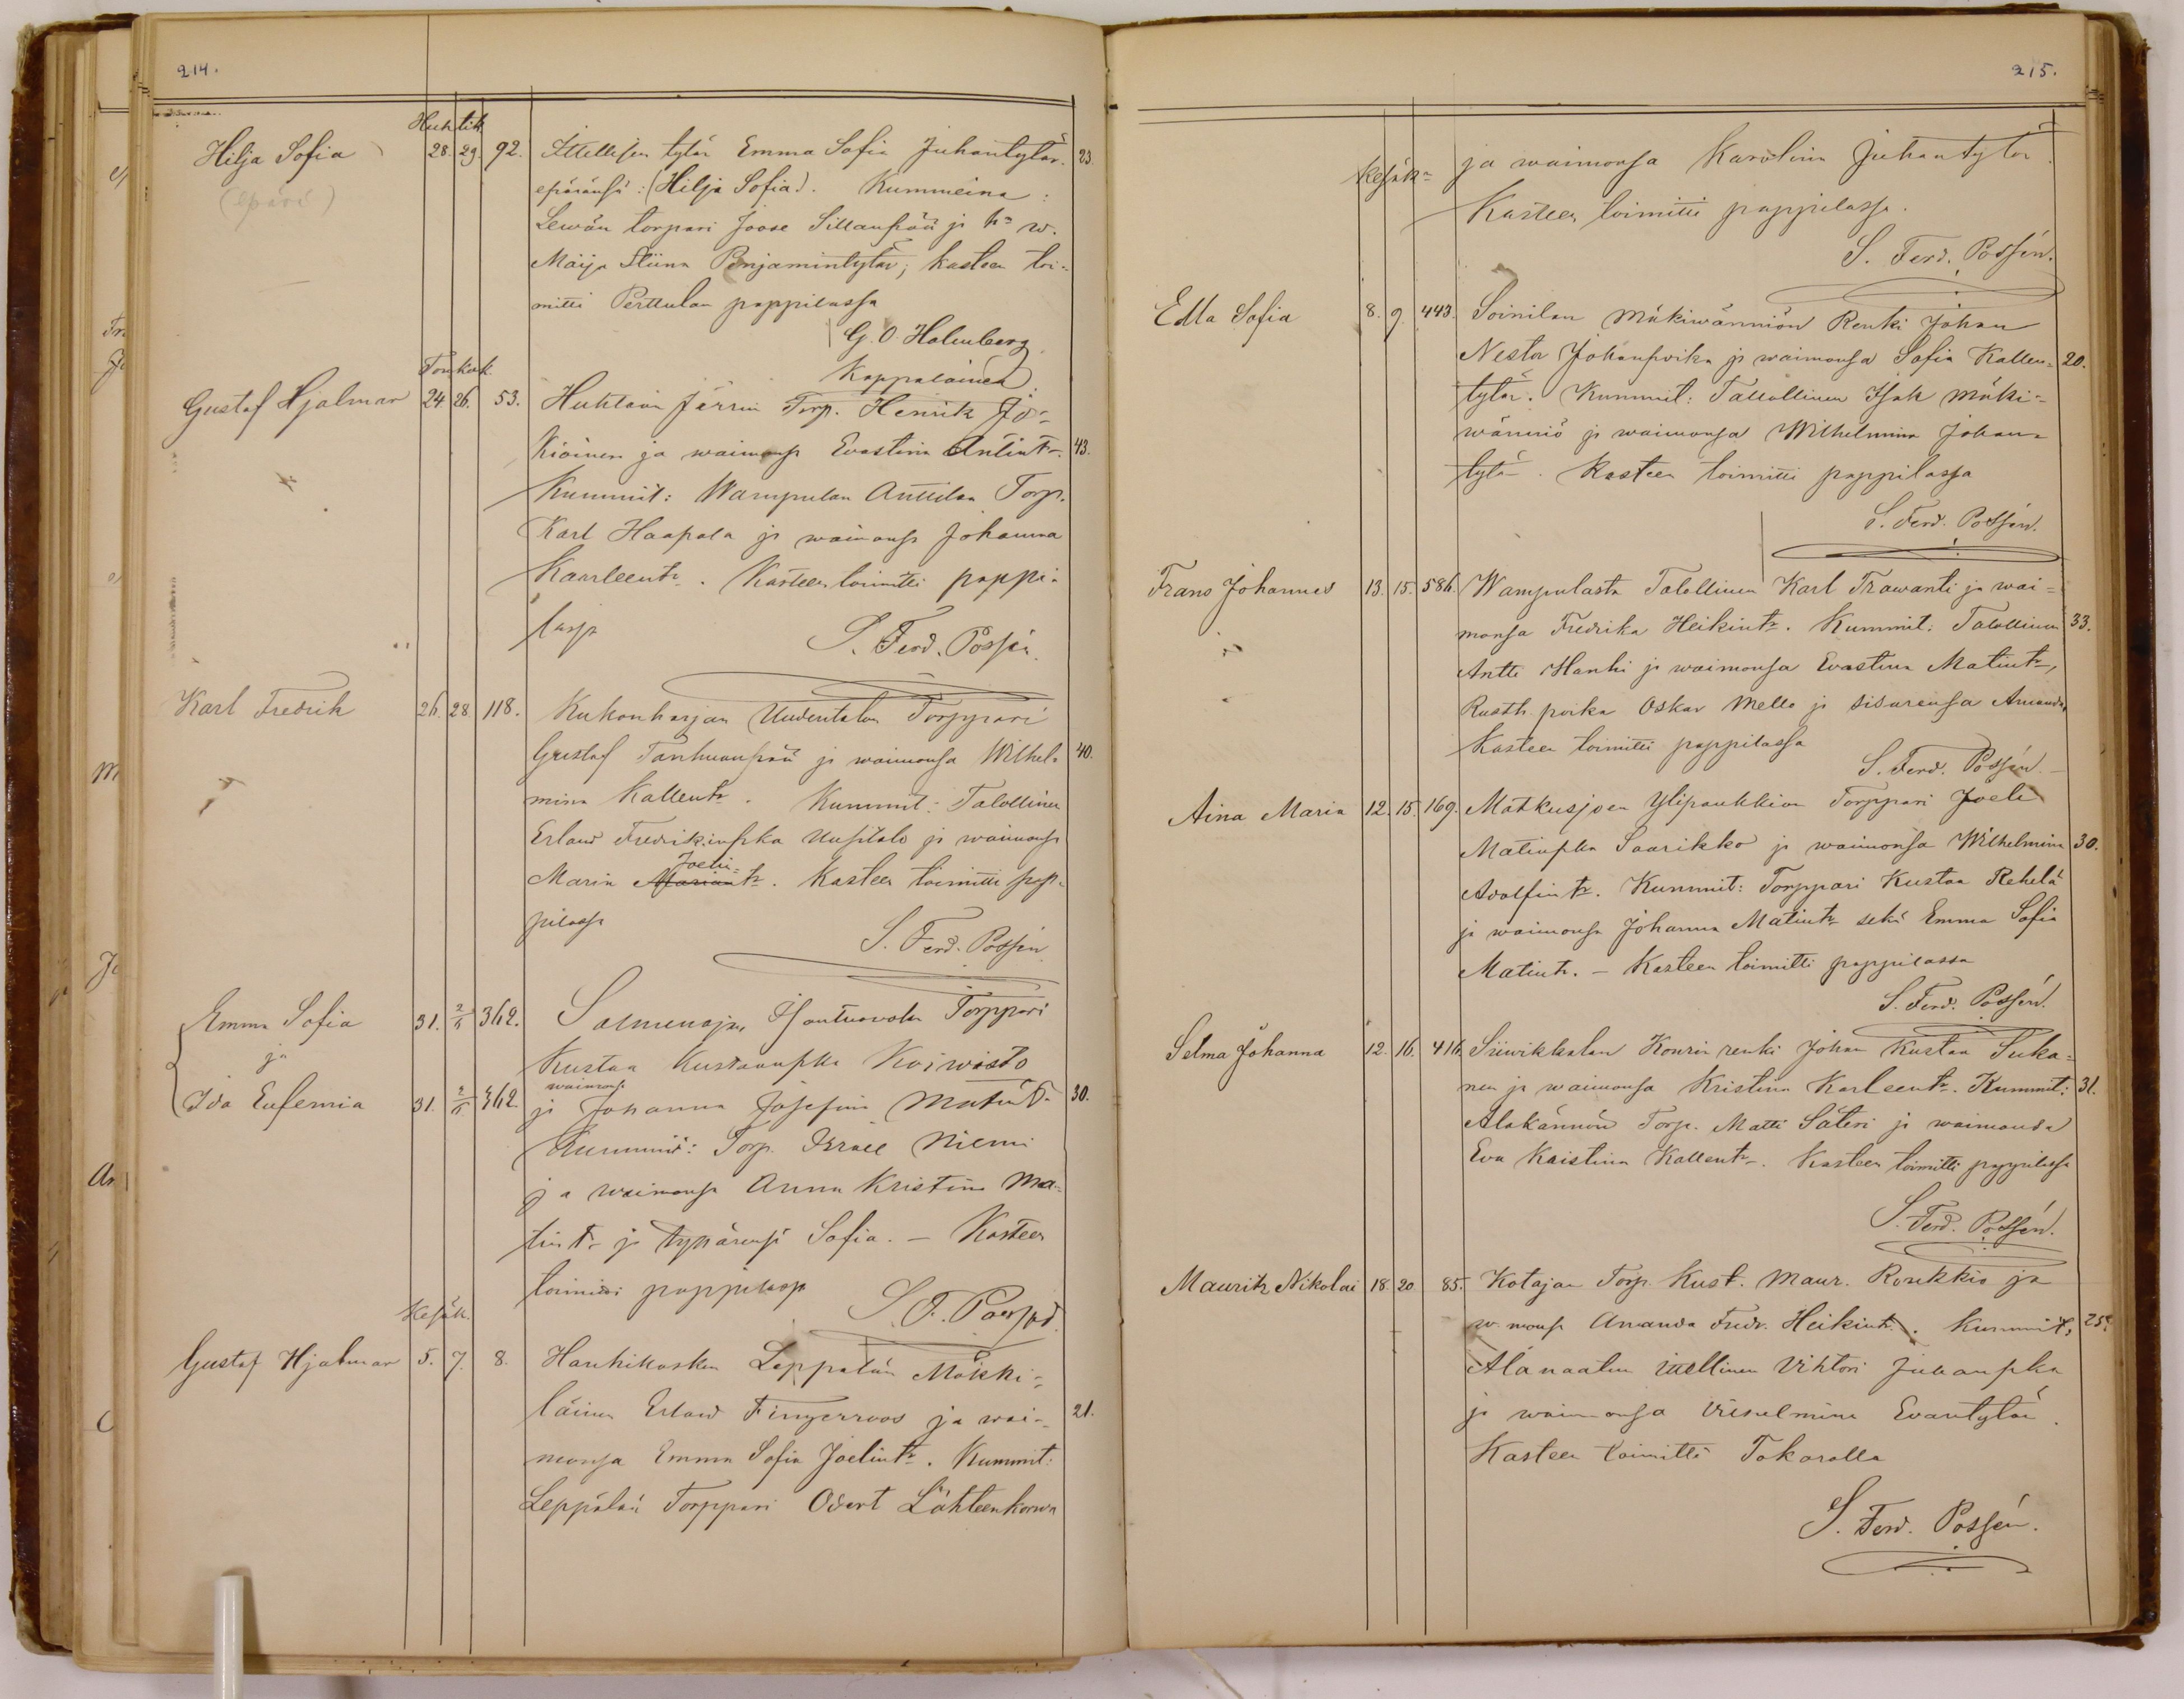 214.
Huhtik.
Hilja Sofia 28. 29. 92. Ittellisen tytär Emma Sofia Juhantytär. 23.
(epärä) epäränsä: (Hilja Sofia). Kummeina:
Lewän torpari Joose Sillanpää ja hn w.
Maija Stiina Benjamintytär; kasteen toi-
mitti Perttulan pappilassa
G. O. Holmberg
Kappalainen
Toukok.
Gustaf Hjalmar 24. 26. 53. Huhtaan Järvin Torp. Henrik Jo-
kioinen ja waimonsa Evastina Antint. 43.
Kummit: Wampulan Anttilan Torp.
Karl Haapala ja waimonsa Johanna
Kaarleentr. Kasteen toimitti pappi-
lassa
S. Ferd. Possén.
Karl Fredrik 26. 28. 118. Kukonharjan Uudentalon Torppari
Gustaf Tanhuanpää ja waimonsa Wilhel- 40.
mina Kallentr. Kummit: Talollinen
Erland Fredrikinpka Uusitalo ja waimonsa
Maria Joelin- tr. Kasteen toimitti pap-
pilassa
S. Ferd. Possén
Emma Sofia 31. 2/6 362. Salmenoja, Torppari
ja Kustaa Kustaanpka Koiwisto
waimonsa
Ida Eufemia 31. 2/6 362. ja Johanna Josefina Matint. 30.
Kummit: Torp. Israel Niemi
ja waimonsa Anna Kristina Ma-
tint. ja tyttärensä Sofia. — Kasteen
toimitti pappilassa
S. F. Possén
Kesäk.
Gustaf Hjalmar 5. 7. 8. Hanhikosken Leppälän Mökki-
läinen Erland Fingerroos ja wai- 21.
monsa Emma Sofia Joelintr. Kummit:
Leppälän Torppari Odert Lähteenkorwa
215.
Kesäk. ja waimonsa Karolina Juhantytär.
Kasteen toimitti pappilassa.
S. Ferd. Possén.
Edla Sofia 8. 9. 443. Soinilan Mäkiwänniön Renki Johan
Nestor Johanpoika ja waimonsa Sofia Kallen- 20.
tytär. Kummit: Talollinen Isak Mäki-
wänniö ja waimonsa Wilhelmina Johan-
tytär. Kasteen toimitti pappilassa
S. Ferd. Possén.
Frans Johannes 13. 15. 586. Wampulasta Talollinen Karl Trawanti ja wai-
monsa Fredrika Heikintr. Kummit: Talollinen 33.
Antti Hanhi ja waimonsa Evastina Matintr,
Rusth. poika Oskar Mello ja sisarensa Amanda,
Kasteen toimitti pappilassa
S. Ferd. Possén.
Aina Maria 12. 15. 169. Matkusjoen Ylipaukkion Torppari Joeli
Matinpka Saarikko ja waimonsa Wilhelmina 30.
Adolfintr. Kummit: Torppari Kustaa Rehelä
ja waimonsa Johanna Matintr sekä Emma Sofia
Matintr. — Kasteen toimitti pappilassa
S. Ferd. Possén.
Selma Johanna 12. 16. 416. Siiwikkalan Konrin renki Johan Kustaa Suka-
nen ja waimonsa Kristina Karleentr. Kummit: 31.
Alakännön Torp. Matti Säteri ja waimonsa
Eva Kaistina Kallentr. Kasteen toimitti pappilassa
S. Ferd. Possén.
Mauritz Nikolai 18. 20. 85. Kotajan Torp. Kust. Maur. Ronkkio ja
w. monsa Amanda Fredr. Heikintr. Kummit; 25.
itellinen Vihtori Juhanpka
ja waimonsa Vilhelmina Evantytär.
Kasteen toimitti Takaralla
S. Ferd. Possén.